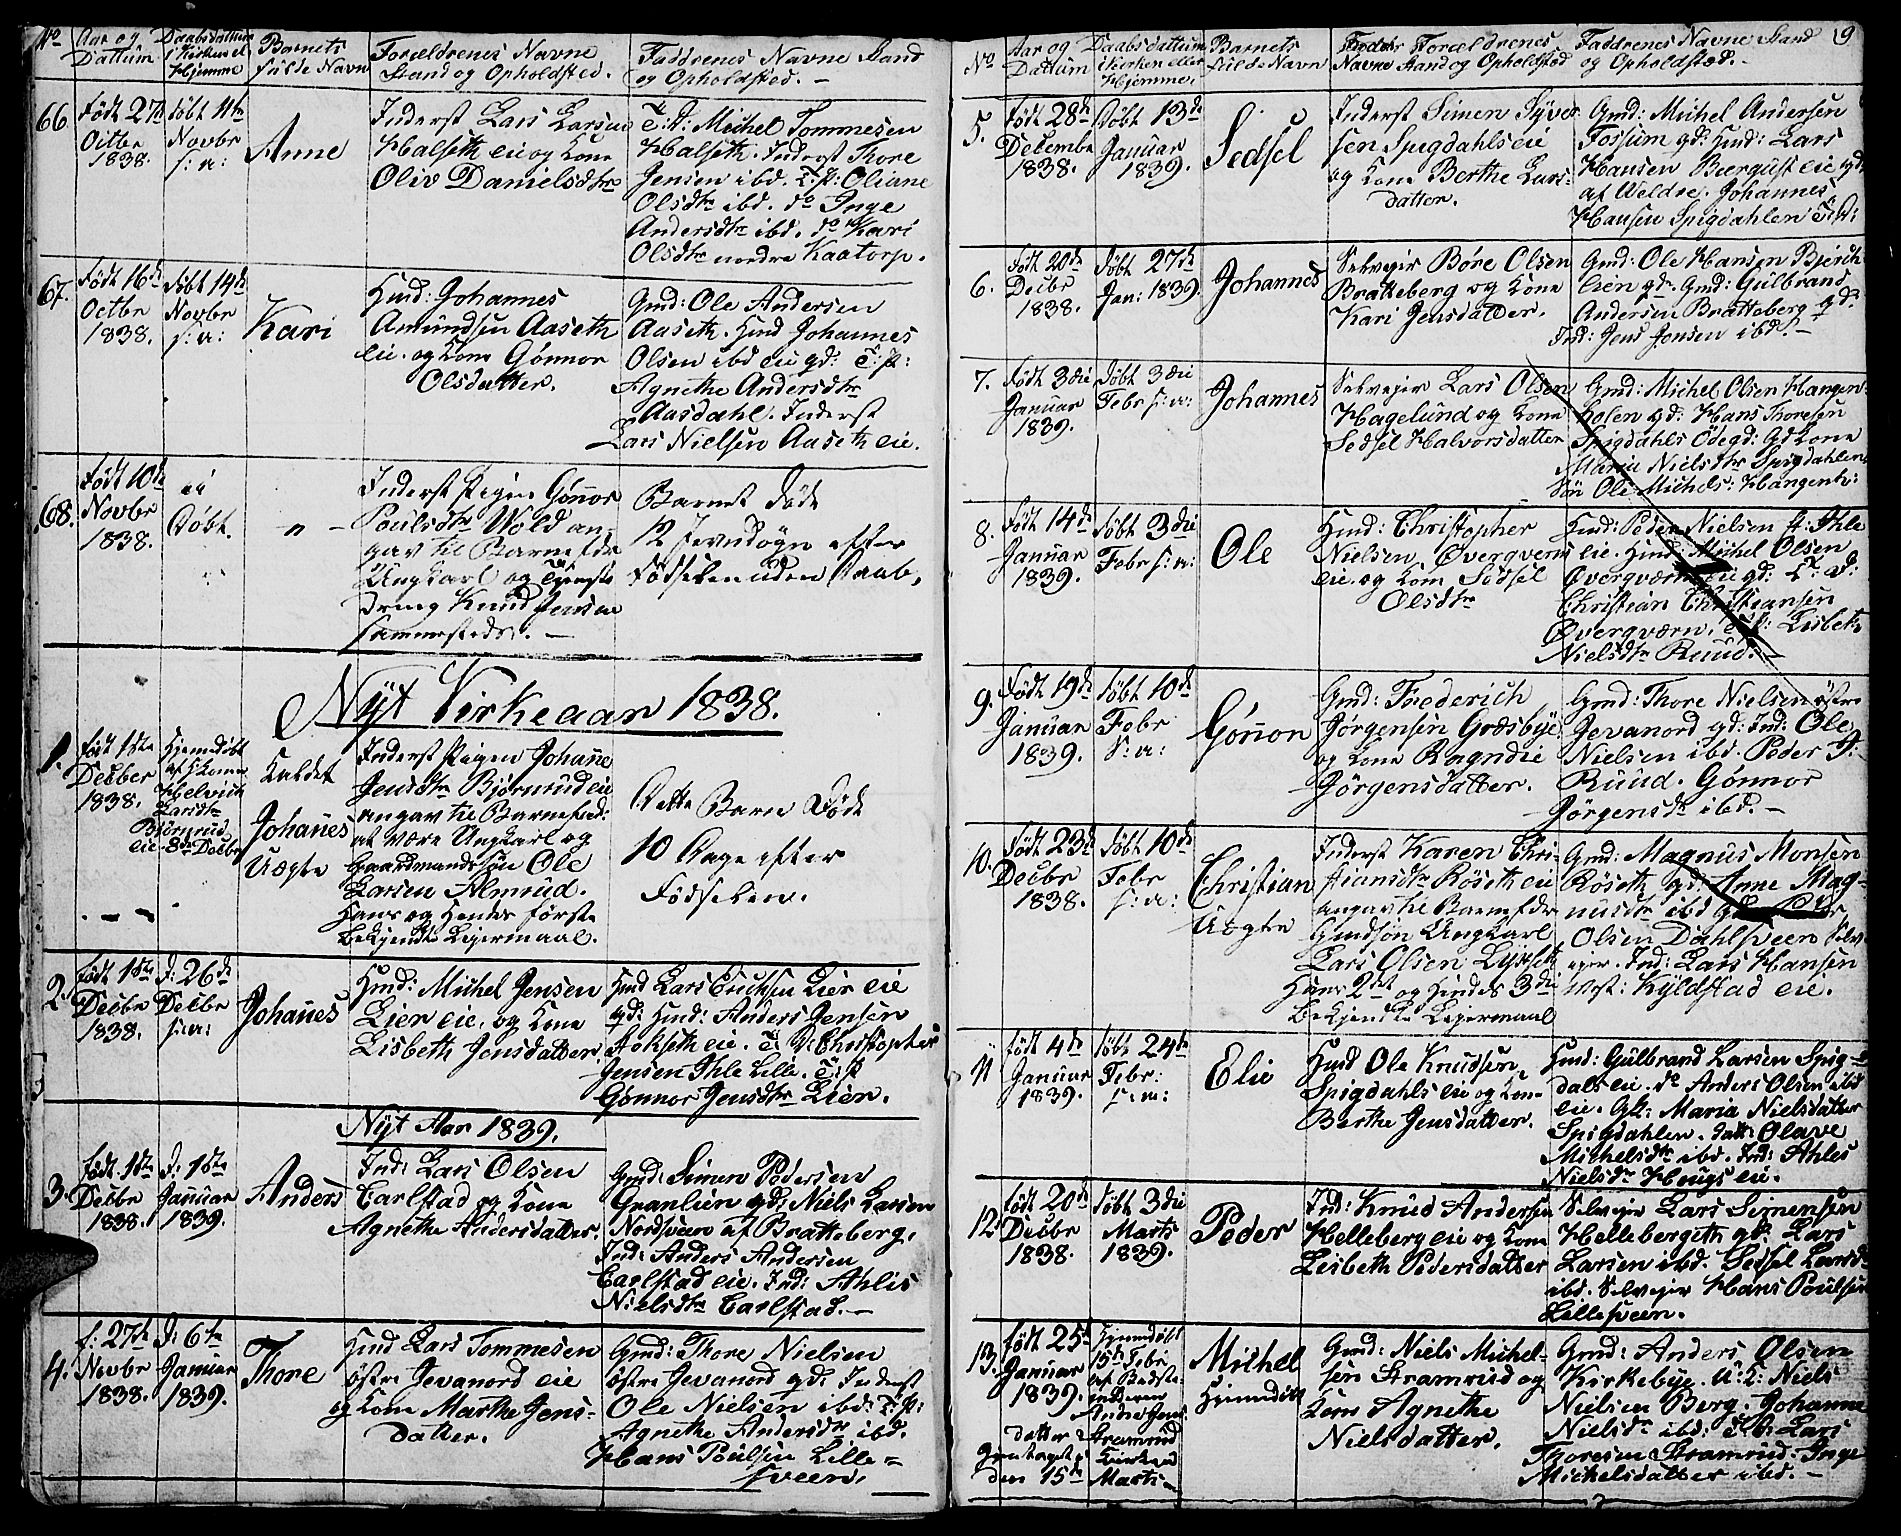 No
Aar og
Dattum
Daabsdattum
i Kirken el
Hjemme
Barnets
fulde Navn
Forældrenes Navne
Stand og Opholdsted.
Faddrenes Navne Stand
og Opholdsted. -
66.
Født 27de
Octbr
1838.
Døbt 11te
Novbr
s: a:
Anne
Inderst Lars Larsen
Halseth eie og Kone
Oliv Danielsdtr
T: D: Michel Tommesen
Halseth. Inderst Thore
Jensen ibd. T: P: Oliane
Olsdtr ibd. do Inge
Andersdtr ibd. do Kari
Olsdtr nordre Kaatorp.
67.
Født 16de
Octbr
1838.
Døbt 14de
Novbr
s: a:
Kari
Hmd: Johannes
Amundsen Aaseth
eie. og Kone Gønnor
Olsdatter.
Gmd: Ole Andersen
Aaseth. Hmd Johannes
Olsen ibd eie gd: T: P:
Agnethe Andersdtr
Aasdahl. Inderst
Lars Nielsen Aaseth eie.
68.
Født 10de
Novbr
1838.
ei
Døbt.
"
Inderst Pigen Gønnor
Poulsdtr Wold an-
gav til Barnefdr
Ungkarl og Tjeneste
dreng Knud Jensen
sammesteds. -
Barnet døde
12 Jevndøgn efter
Fødselen uden Daab.
Nyt Kirkeaar 1838.
1.
Født 1ste
Decber
1838.
Hjemdøbt
af G: Kone
Helvich
Larsdtr
Bjørnrud
eie 8de Decbr
Kaldet
Johannes
Uægte
Inderst Pigen Johanne
Jensdtr Bjørnrud eie
angav til Barnefad:
at være Ungkarl og
Gaardmandssøn Ole
Larsen Almrud.
Hans og Hendes første
bekjendte Leiermaal.
Dette Barn døde
10 Dage efter
Fødselen.
2.
Født 1ste
Decbr
1838.
D: 26de
Decbr
s: a:
Johannes
Hmd: Michel Jensen
Lier eie. og Kone
Lisbeth Jensdatter
Hmd Lars Erichsen Lier eie
gd: Hmd: Anders Jensen
eie. T: D: Christopher
Jensen Ihle Lille. T: P
Gønnor Jensdtr Lier.
Nyt Aar 1839.
3.
Født 1ste
Decbr
1838.
D: 1ste
Januar
1839.
Anders
Ind: Lars Olsen
Carlstad og Kone
Agnethe Andersdatter.
Gmd: Simen Pedersen
Granlien gd: Niels Larsen
Nordsveen af Bratteberg.
Ind: Anders Andersen
Carlstad eie. Ind: Ahlis
Nielsdtr Carlstad. -
4.
f: 27de
Novbr
1838.
D: 6te
Januar
1839.
Thore
Hmd Lars Tommesen
østre Jevanord eie
og Kone Marthe Jens-
datter.
Gmd: Thore Nielsen
østre Jevanord gd: Inderst
Ole Nielsen ibd: T: P:
Agnethe Andersdtr ibd.
Hans Poulsen Lille-
sveen.
No
Aar og
Dattum
Daabsdattum
i Kirken eller
Hjemme.
Barnets
fuld: Navn
Forældrenes
Navne Stand og Opholdsted
Faddrenes Navne Stand
og Opholdsted. -
9
5.
Født 28de
Decembr
1838.
Døbt 13de
Januar
1839.
Sedsel
Inderst Simen Syver
sen Spigdahls eie
og Kone Berthe Lars-
datter.
Gmd: Michel Andersen
Fossum gd: Hmd: Lars
Hansen eie gd:
af Weldre. Johannes
Hansen Spigdahlen T: D:
6.
Født 20de
Decbr
1838.
Døbt 27de
Jan: 1839.
Johannes
Selvejer Børe Olsen
Bratteberg og Kone
Kari Jensdatter.
Gmd: Ole Hansen Bjerch-
lien gd. Gmd: Gulbrand
Andersen Bratteberg gd:
Ind: Jens Jensen ibd. -
7.
Født 3die
Januar
1839.
Døbt 3die
Febr s: a:
Johannes
Selvejer Lars Olsen
Hagelund og Kone
Sedsel Halvorsdatter
Gmd: Michel Olsen Hangen-
holen gd: Hans Thoresen
Spigdahls Ødegd: Gd Kone
Maria Nielsdtr Spigdahlen
Søn Ole Michels: Hangenh:
8.
Født 14de
Januar
1839.
Døbt 3die
Febr s: a:
Ole
Hmd: Christopher
Nielsen Overgværn
eie. og Kone Sedsel
Olsdtr
Hmd: Peder Nielsen Ihle
eie. Hmd: Michel Olsen
Overgværn eie gd: T: D:
Christian Christiansen
Overgværn. T: P: Lisbeth
Nielsdtr Ruud.
9.
Født 19de
Januar
1839.
Døbt 10de
Febr
s: a:
Gønnor
Gmd: Frederich
Jørgensen Græsbye
og Kone Ragndie
Jørgensdatter.
Gmd: Thore Nielsen østre
Jevanord gd: Ind: Ole
Nielsen ibd. Peder
Ruud. Gønnor
Jørgensdtr ibd. -
10.
Født 23de
Decbr
1838.
Døbt 10de
Febr
s: a:
Christian
Uægte
Inderst Karen Chri-
stiansdtr Røseth eie
angav til Barnefdr
Gmdsøn Ungkarl
Lars Olsen
Hans 2det og Hendes 3die
bekjendte Leiermaal
Gmd: Magnus Monsen
Røseth gd: Anne Mag-
nusdtr ibd
Olsen Dahlsveen Selv-
ejer. Ind: Lars Hansen
Vest: Kyldstad eie.
11
Født 4de
Januar
1839.
Døbt 24de
Febr:
s: a:
Elie
Hmd Ole Knudsen
Spigdahls eie og Kone
Berthe Jensdatter.
Hmd: Gulbrand Larsen Spig-
dals eie. do Anders Olsen ibd
eie. Gk: Maria Nielsdatter
Spigdahlen. datt: Olave
Michelsdtr ibd. Ind: Ahles
Nielsdtr Haugs eie.
12.
Født 20de
Decbr
1838.
Døbt 3die
Marts
1839.
Peder
Ind: Knud Andersen
Helleberg eie og Kone
Lisbeth Pedersdatter
Selvejer Lars Simensen
Hellebergeth gd: Lars
Larsen ibd. Sedsel Larsd:
ibd. Selvejer Hans Poulsen
Lillesveen.
13.
Født 25de
Januar
1839.
Hjemdøbt
15de Febr
af Bedste
moderen
Andre Jens-
datter
Stramrud
fremtaget i
Kirken
den 15de
Marts
Michel
Hjemdøbt
Gmd: Niels Michel-
sen Stramrud og
Kone Agnethe
Nielsdatter.
Gmd: Anders Olsen
Kirkebye. U: K: Niels
Nielsen Berg. Johanne
Nielsdtr ibd: T: D: Lars
Thoresen Stramrud. Inge
Michelsdatter ibd. -